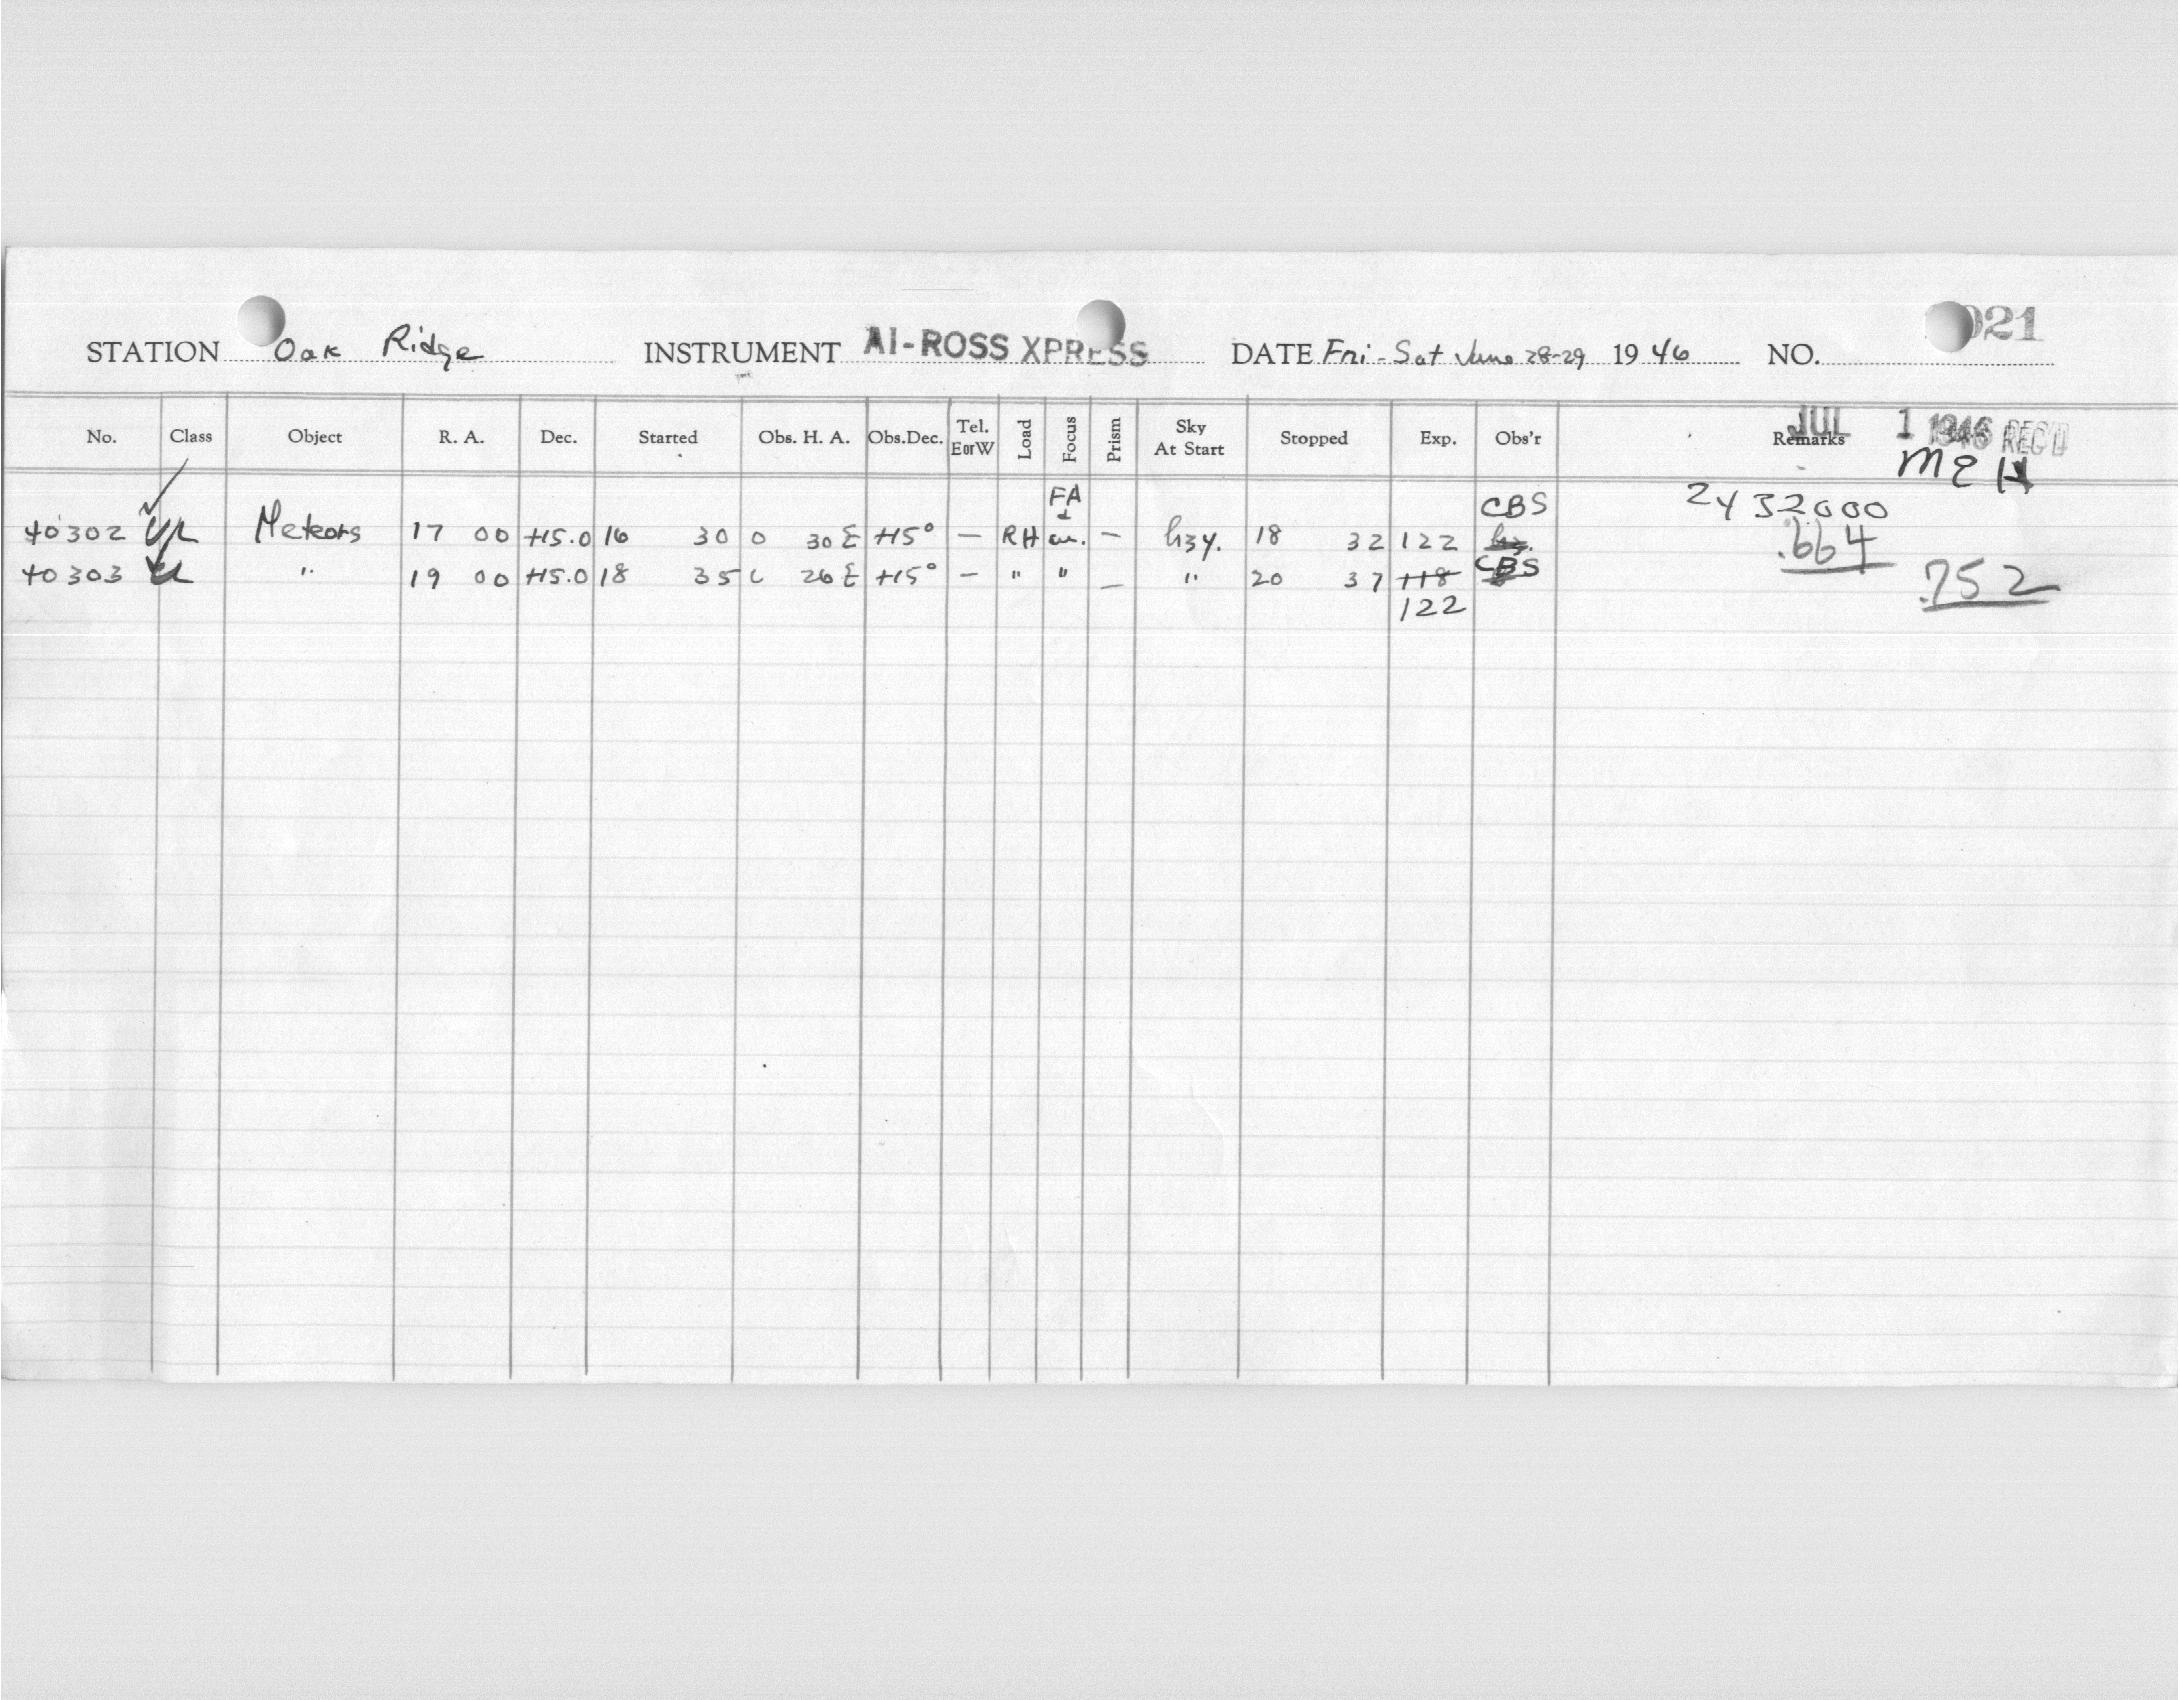 STATION Oak Ridge INSTRUMENT AI-ROSS XPRESS DATE Fri-Sat June 28-29 1946 NO. 921
No. Class Object R. A. Dec. Started Obs. H. A. Obs.Dec. Tel. EorW Load Focus Prism Sky At Start Stopped Exp. Obs'r Remarks
JUL 1 1946 REC'D
MEH
FA CBS 2432000
40302 Meteors 17 00 +15.0 16 30 0 30 E +15° — RH — hzy. 18 32 122 .664
40303 " 19 00 +15.0 18 35 0 26 E +15° — " " — " 20 37 118 CBS .752
122